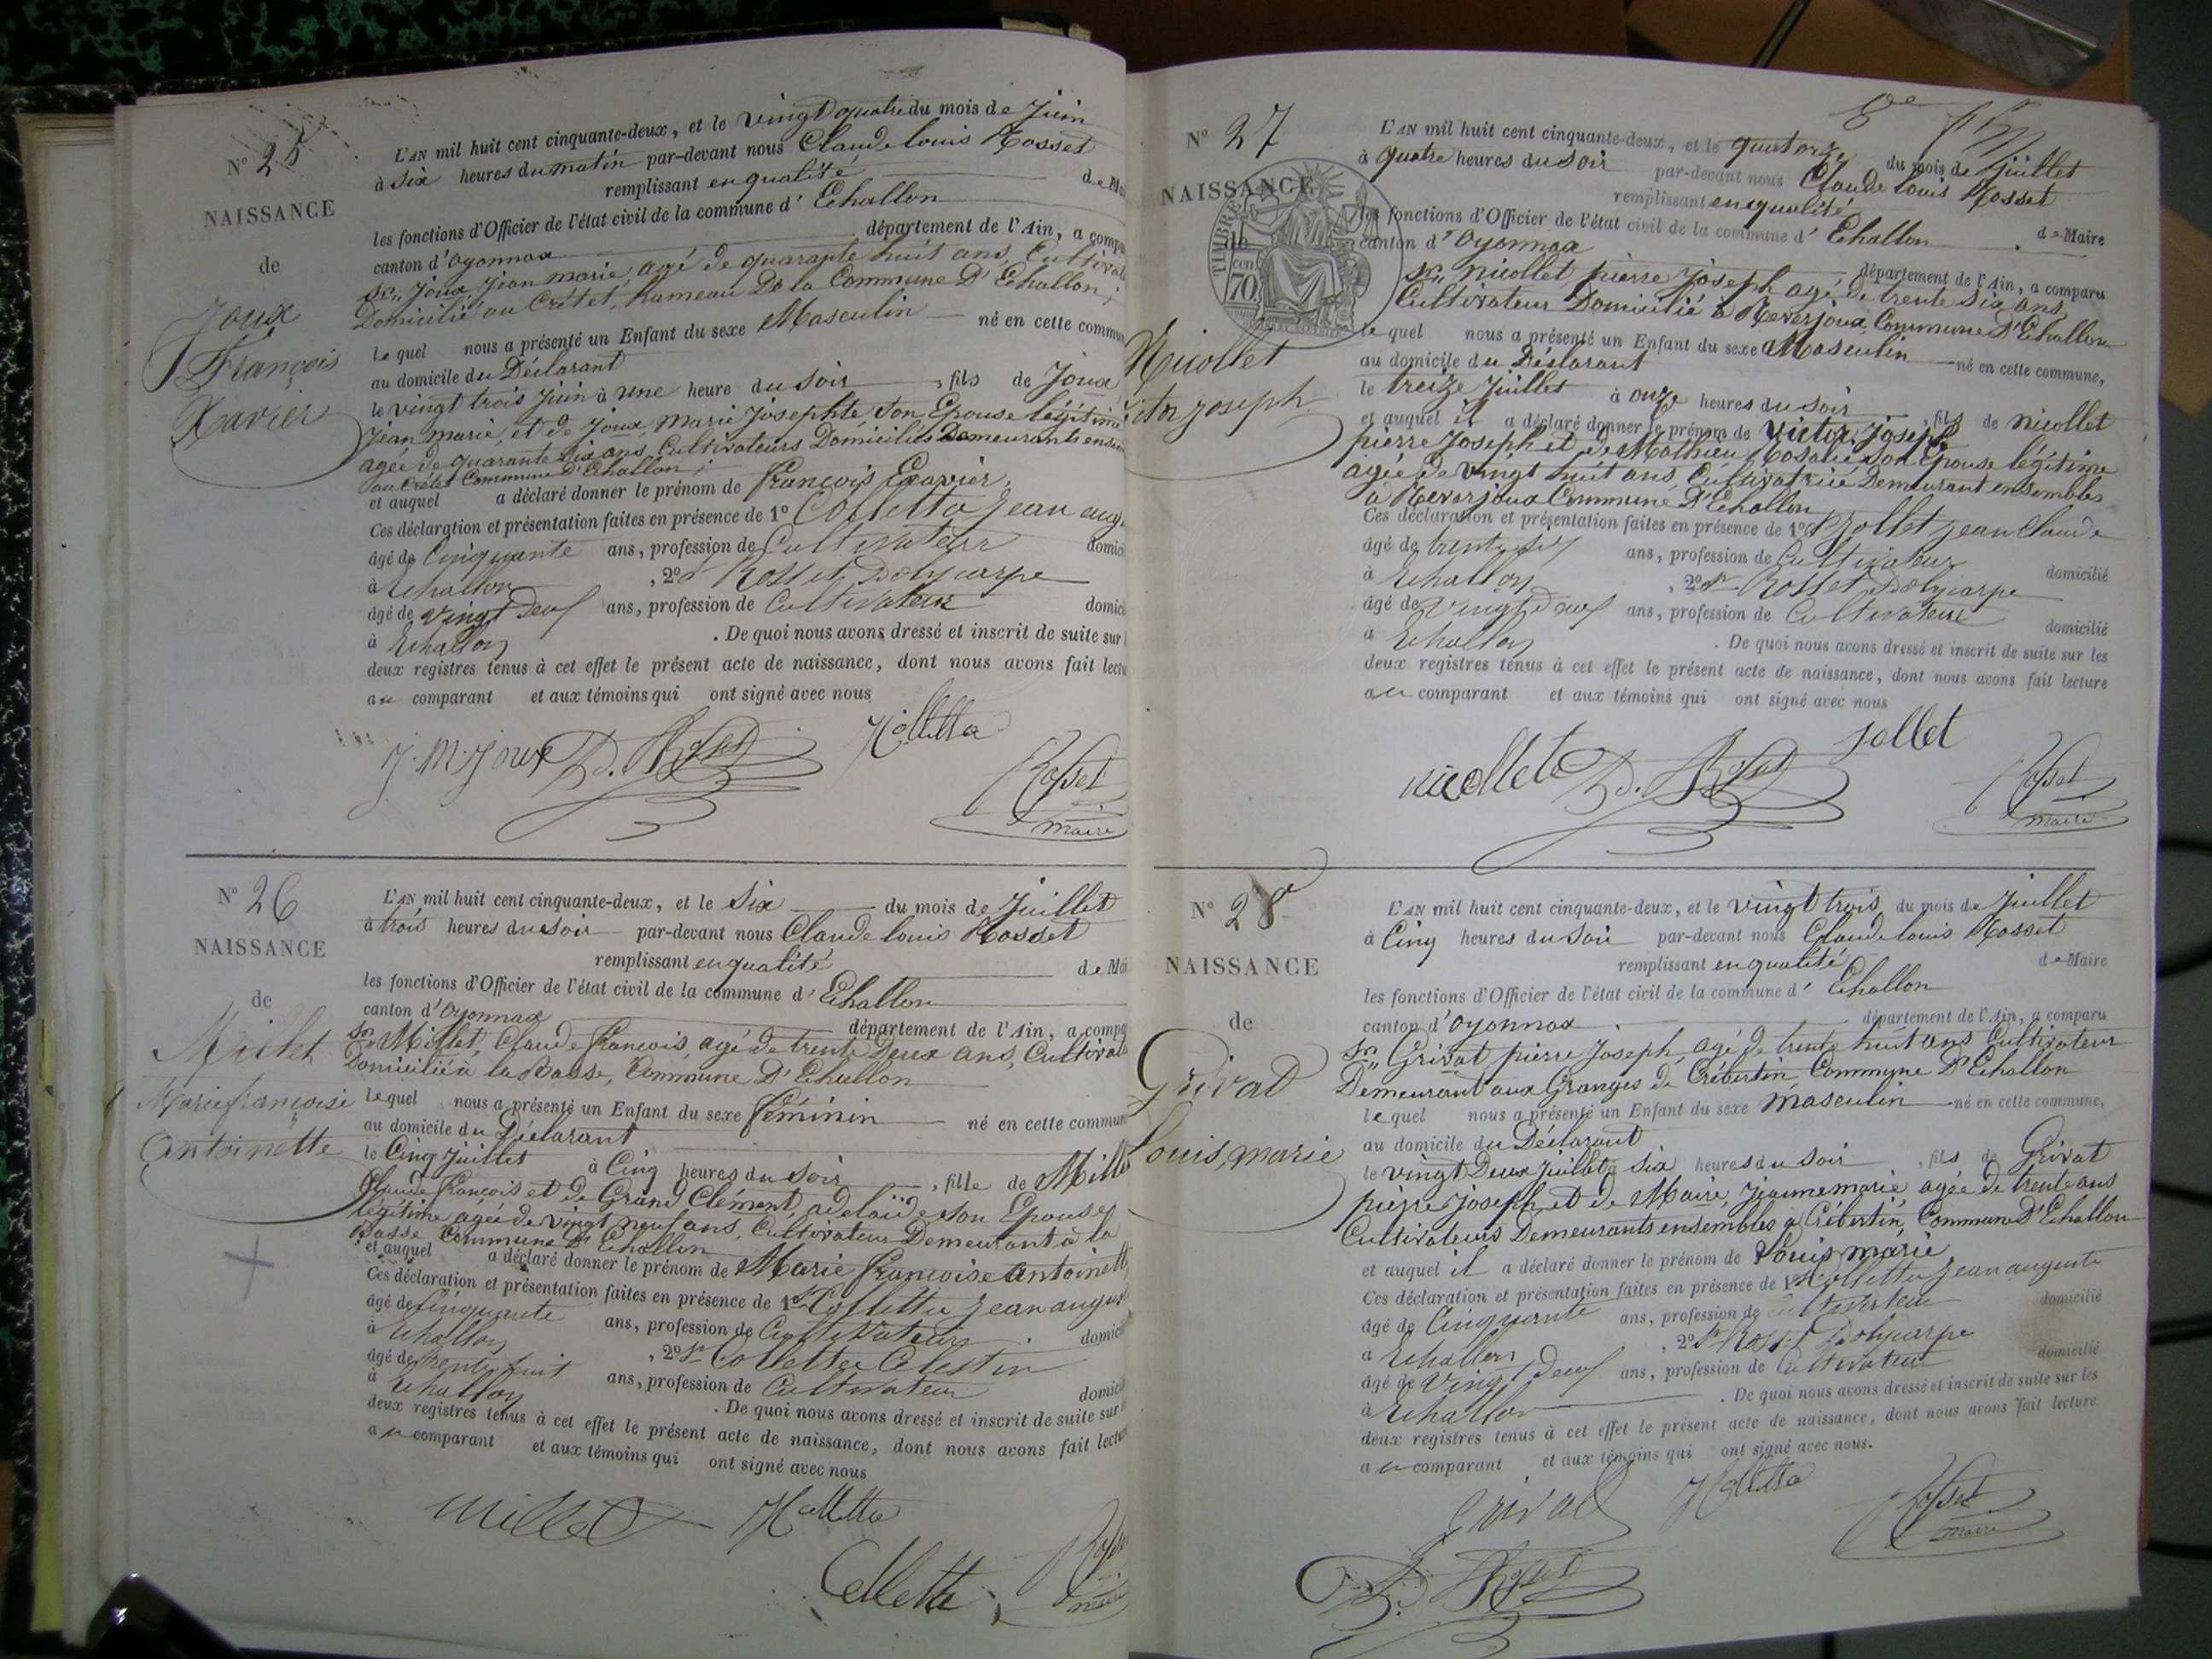 N° 25
NAISSANCE
de
Joux
François
Xavier
L'AN mil huit cent cinquante-deux, et le vingt quatre du mois de Juin
à Six heures du matin par-devant nous Claude louis Rosset
remplissant en qualité de Mai
les fonctions d'Officier de l'état civil de la commune d' Echallon
canton d'oyonnax département de l'Ain, a compa
Sr. Joux, Jean marie, agé de quarante huit ans, Cultivat
Domicilié au Crétet, hameau De la Commune D'Echallon;
Lequel nous a présenté un Enfant du sexe Masculin né en cette commun
au domicile du Déclarant
le vingt trois Juin à une heure du Soir, fils de Joux
Jean marie, et de Joux, Marie Josephte Son Epouse légitime
agée de quarante six ans, Cultivateurs Domiciliés Demeurants ensem
au Crétet Commune D'Echallon;
et auquel a déclaré donner le prénom de françois Exavier.
Ces déclaration et présentation faites en présence de 1° Colletta Jean augu
âgé de Cinquante ans, profession de Cultivateur domici
à Echallon, 2° Rosset Polycarpe
âgé de vingt deuf ans, profession de Cultivateur domici
à Echallon. De quoi nous avons dressé et inscrit de suite sur
deux registres tenus à cet effet le présent acte de naissance, dont nous avons fait lectu
au comparant et aux témoins qui ont signé avec nous
J. M. Joux P. Rosset Colletta
Rosset
maire
N° 26
NAISSANCE
de
Millet
Marie françoise
antoinette
L'AN mil huit cent cinquante-deux, et le Six du mois de Juillet
à trois heures du Soir par-devant nous Claude louis Rosset
remplissant en qualité de Mai
les fonctions d'Officier de l'état civil de la commune d' Echallon
canton d'oyonnax département de l'Ain, a compa
Sr. Millet, Claude françois, agé de trente Deux ans, Cultivat
Domicilié à la Basse, Commune D'Echallon
Lequel nous a présenté un Enfant du sexe féminin né en cette commun
au domicile du Déclarant
le Cinq Juillet à Cinq heures du Soir, fille de Mille
Claude françois et de Grand Clément, adelaïde Son Epouse
légitime agée de vingt neuf ans, Cultivateurs Demeurant à la
Basse Commune D'Echallon
et auquel a déclaré donner le prénom de Marie françoise antoinett
Ces déclaration et présentation faites en présence de 1° Sr Colletta Jean august
âgé de Cinquante ans, profession de Cultivateur domici
à Echallon, 2° Sr Colletta Célestin
âgé de trente huit ans, profession de Cultivateur domici
à Echallon. De quoi nous avons dressé et inscrit de suite sur
deux registres tenus à cet effet le présent acte de naissance, dont nous avons fait lectu
au comparant et aux témoins qui ont signé avec nous
Millet Colletta
Colletta
Rosset
maire
N° 27
NAISSANCE
de
TIMBRE
70
Nicollet
victor joseph
L'AN mil huit cent cinquante-deux, et le quatorze du mois de Juillet
à quatre heures du Soir par-devant nous Claude louis Rosset
remplissant en qualité de Maire
les fonctions d'Officier de l'état civil de la commune d' Echallon
canton d'oyonnax département de l'Ain, a comparu
Sr. nicollet, pierre Joseph, agé de trente Six ans,
Cultivateur Domicilié à Reverjoux Commune D'Echallon
Lequel nous a présenté un Enfant du sexe Masculin né en cette commune,
au domicile du Déclarant
le treize Juillet à onze heures du Soir, fils de nicollet
et auquel il a déclaré donner le prénom de Victor Joseph
pierre Joseph et de Mathieu Rosalie Son Epouse légitime
agée de vingt huit ans, Cultivatrice Demeurant ensembles
à Reverjoux Commune D'Echallon
Ces déclaration et présentation faites en présence de 1° Sr Jollet Jean Claude
âgé de trente six ans, profession de Cultivateur domicilié
à Echallon, 2° Sr Rosset Polycarpe
âgé de vingt deuf ans, profession de Cultivateur domicilié
à Echallon. De quoi nous avons dressé et inscrit de suite sur les
deux registres tenus à cet effet le présent acte de naissance, dont nous avons fait lecture
au comparant et aux témoins qui ont signé avec nous
nicollet P. Rosset Jollet
Rosset
maire
N° 28
NAISSANCE
de
Grivat
Louis, marie
L'AN mil huit cent cinquante-deux, et le vingt trois du mois de Juillet
à Cinq heures du Soir par-devant nous Claude louis Rosset
remplissant en qualité de Maire
les fonctions d'Officier de l'état civil de la commune d' Echallon
canton d'oyonnax département de l'Ain, a comparu
Sr. Grivat pierre Joseph, agé de trente huit ans Cultivateur
Demeurant aux Granges de Crébertin, Commune D'Echallon
lequel nous a présenté un Enfant du sexe masculin né en cette commune,
au domicile du Déclarant
le vingt Deux Juillet à Six heures du Soir, fils de Grivat
pierre Joseph et de Maire, Jeanne marie, agée de trente ans
Cultivateurs Demeurants ensembles à Crébertin, Commune D'Echallon
et auquel il a déclaré donner le prénom de Louis marie
Ces déclaration et présentation faites en présence de 1° Sr Colletta Jean auguste
âgé de Cinquante ans, profession de cultivateur domicilié
à Echallon, 2° Sr Rosset Polycarpe
âgé de vingt deuf ans, profession de Cultivateur domicilié
à Echallon. De quoi nous avons dressé et inscrit de suite sur les
deux registres tenus à cet effet le présent acte de naissance, dont nous avons fait lecture
au comparant et aux témoins qui ont signé avec nous.
Grivat Colletta
Rosset
maire
P. Rosset